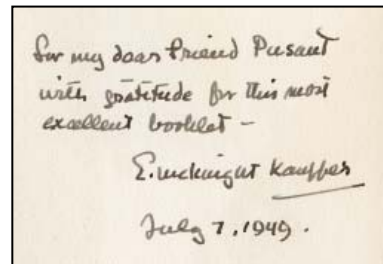 for my dear friend Pusant
with gratitude for this most
excellent booklet –
E. McKnight Kauffer
July 7, 1949.